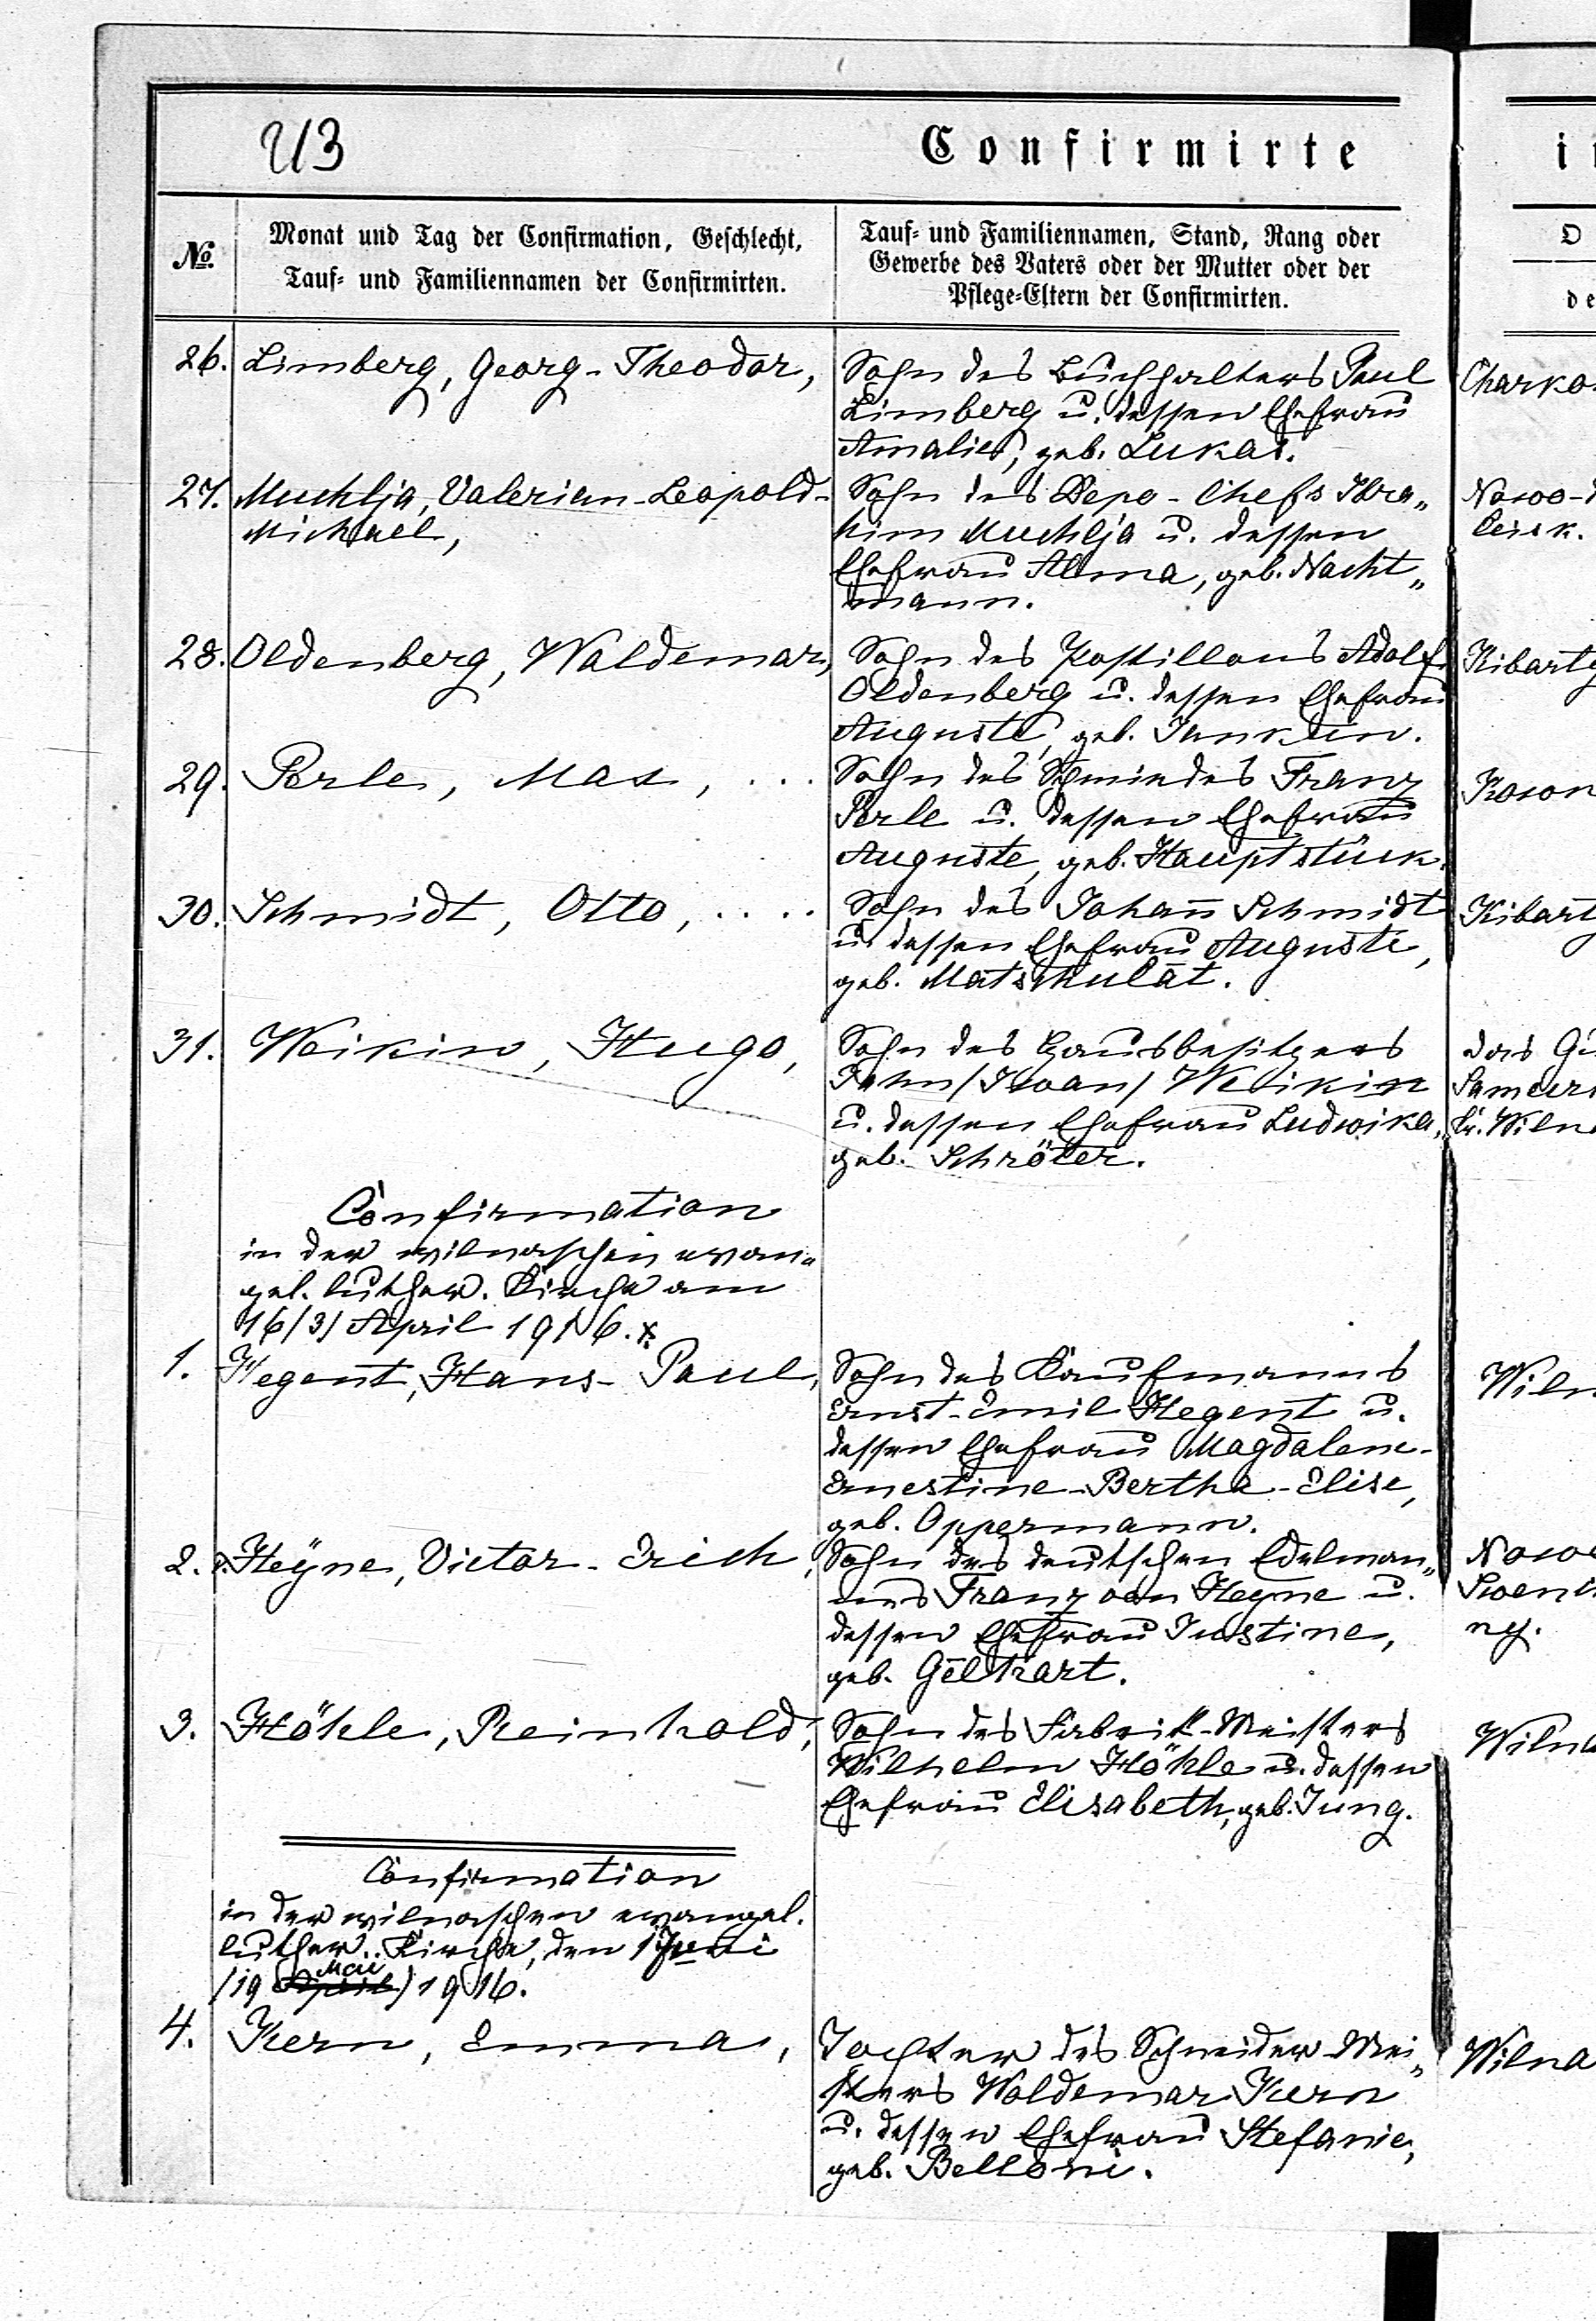 Confirmirte
No.
Monat und Tag der Confirmation, Geschlecht,
Tauf- und Familiennamen der Confirmirten.
Tauf- und Familiennamen, Stand, Rang oder
Gewerbe des Vaters oder der Mutter oder der
Pflege-Eltern der Confirmirten.
26. Limberg, Georg-Theodor,
Sohn des Buchhalters Paul
Limberg u. dessen Ehefrau
Amalie, geb. Lukas.
27. Muchlja, Valerian-Leopold-
Michael,
Sohn des Depo-Chefs
Muchlja u. dessen
Ehefrau Alma, geb. Nacht„
mann.
28. Oldenberg, Waldemar,
Sohn des Postillons Adolf
Oldenberg u. dessen Ehefrau
Auguste, geb.
29. Perle, Max, ...
Sohn des Schmiedes Franz
Perle u. dessen Ehefrau
Auguste, geb. Hauptstück.
30. Schmidt, Otto, ....
Sohn des Johann Schmidt
u. dessen Ehefrau Auguste,
geb. Matschulat.
31. Weikin, Hugo,
Sohn des Hausbesitzers
/Iwan/ Weikin
u. dessen Ehefrau Ludwika,
geb. Schröter.
Confirmation
in der wilnaschen evan„
gel. luther. Kirche am
16/3/ April 1916.
1. Hegent, Hans-Paul,
Sohn des Kaufmanns
Ernst-Emil Hegent u.
dessen Ehefrau Magdalene-
Ernestine-Bertha-Elise,
geb. Oppermann.
2. v. Heyne, Victor-Erich,
Sohn des deutschen Edelman„
nes Franz von Heyne u.
dessen Ehefrau Justine,
geb. Gelhart.
3. Höhle, Reinhold,
Sohn des Fabrik-Meisters
Wilhelm Höhle u. dessen
Ehefrau Elisabeth, geb. Jung.
Confirmation
in der wilnaschen evangel.
luther. Kirche, den 1 Juni
/19 April Mai/ 1916.
4. Kern, Emma,
Tochter des Schneider-Mei„
sters Woldemar Kern
u. dessen Ehefrau Stefanie,
geb. Belloni.
Charko
Nowo-
Kibart
Kown
Kibart
das Gu
Kr. Wiln
Wiln
Nowo
ny.
Wilna
Wilna